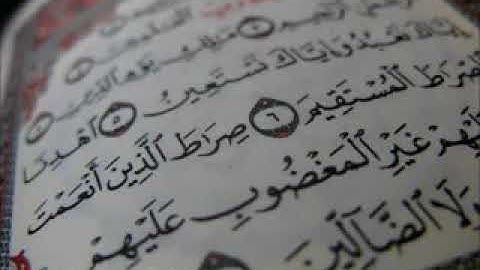 مَٰلِكِ يَوْمِ الدِّينِ
إِيَّاكَ نَعْبُدُ وَإِيَّاكَ نَسْتَعِينُ ٥ اهْدِنَا
الصِّرَاطَ الْمُسْتَقِيمَ ٦ صِرَاطَ الَّذِينَ أَنْعَمْتَ
عَلَيْهِمْ غَيْرِ الْمَغْضُوبِ عَلَيْهِمْ
وَلَا الضَّالِّينَ